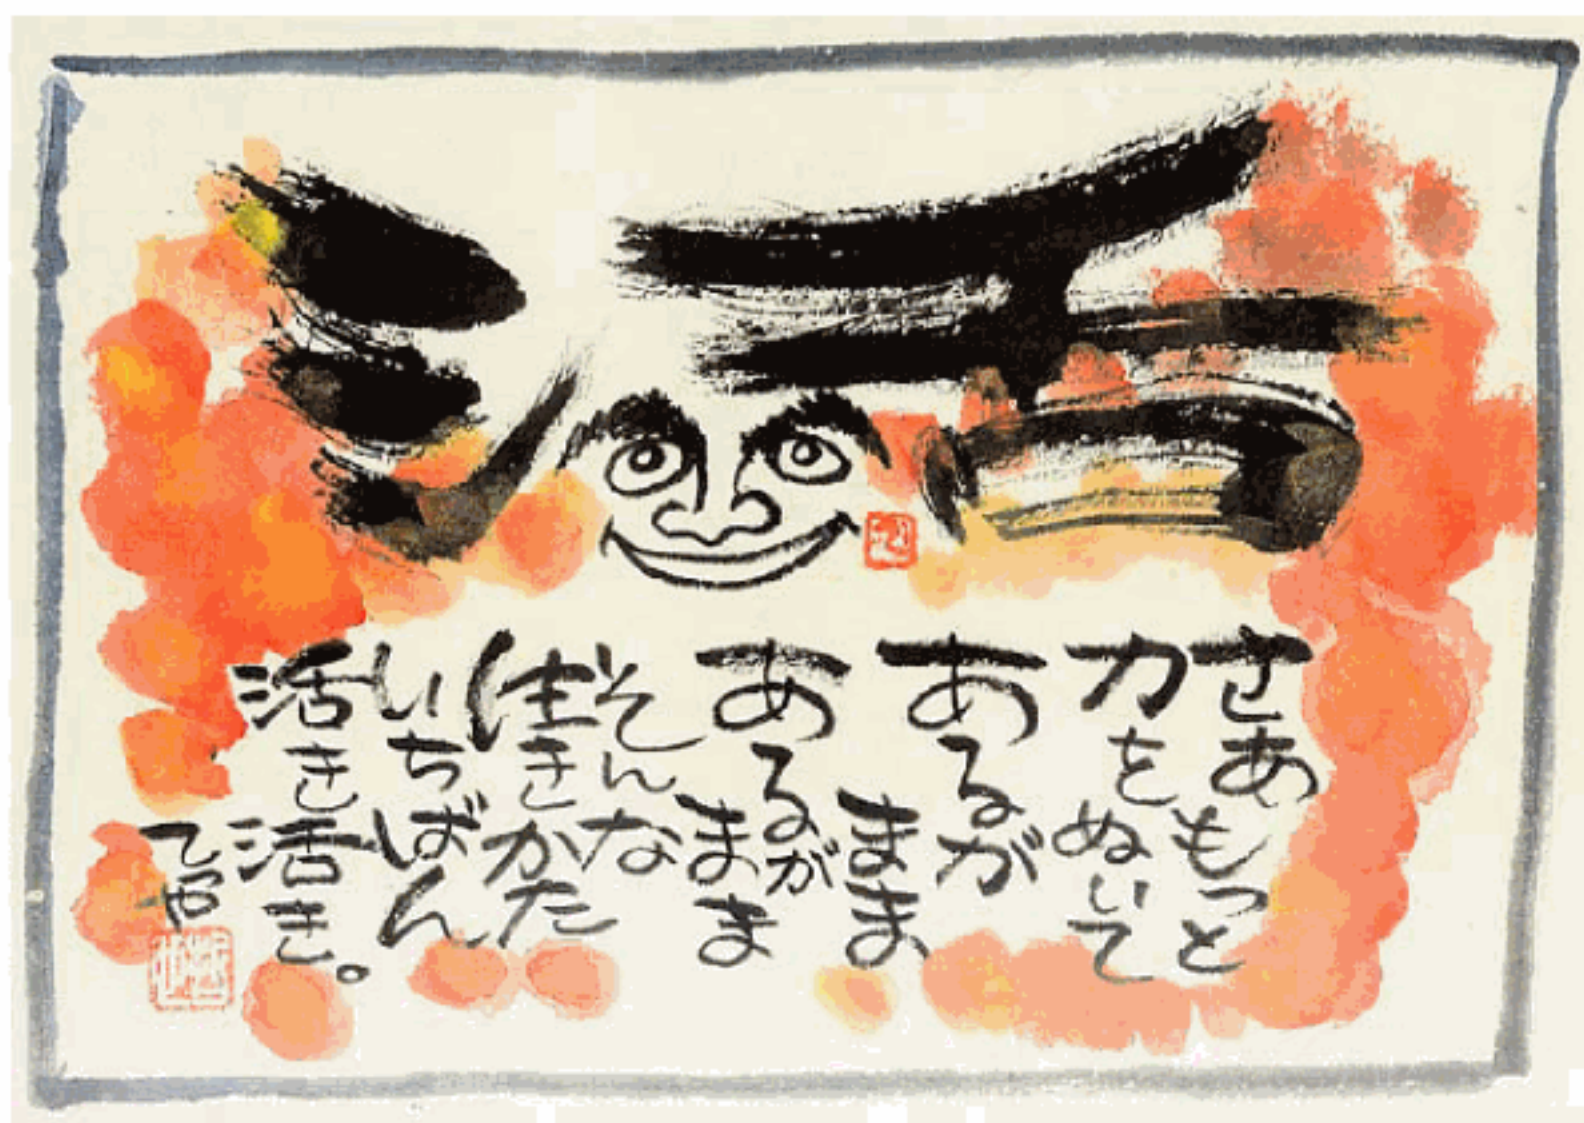 活
さあもっと
力をぬいて
あるが
まま
あるが
まま
そんな
生きかた
いちばん
活き活き。
てつや